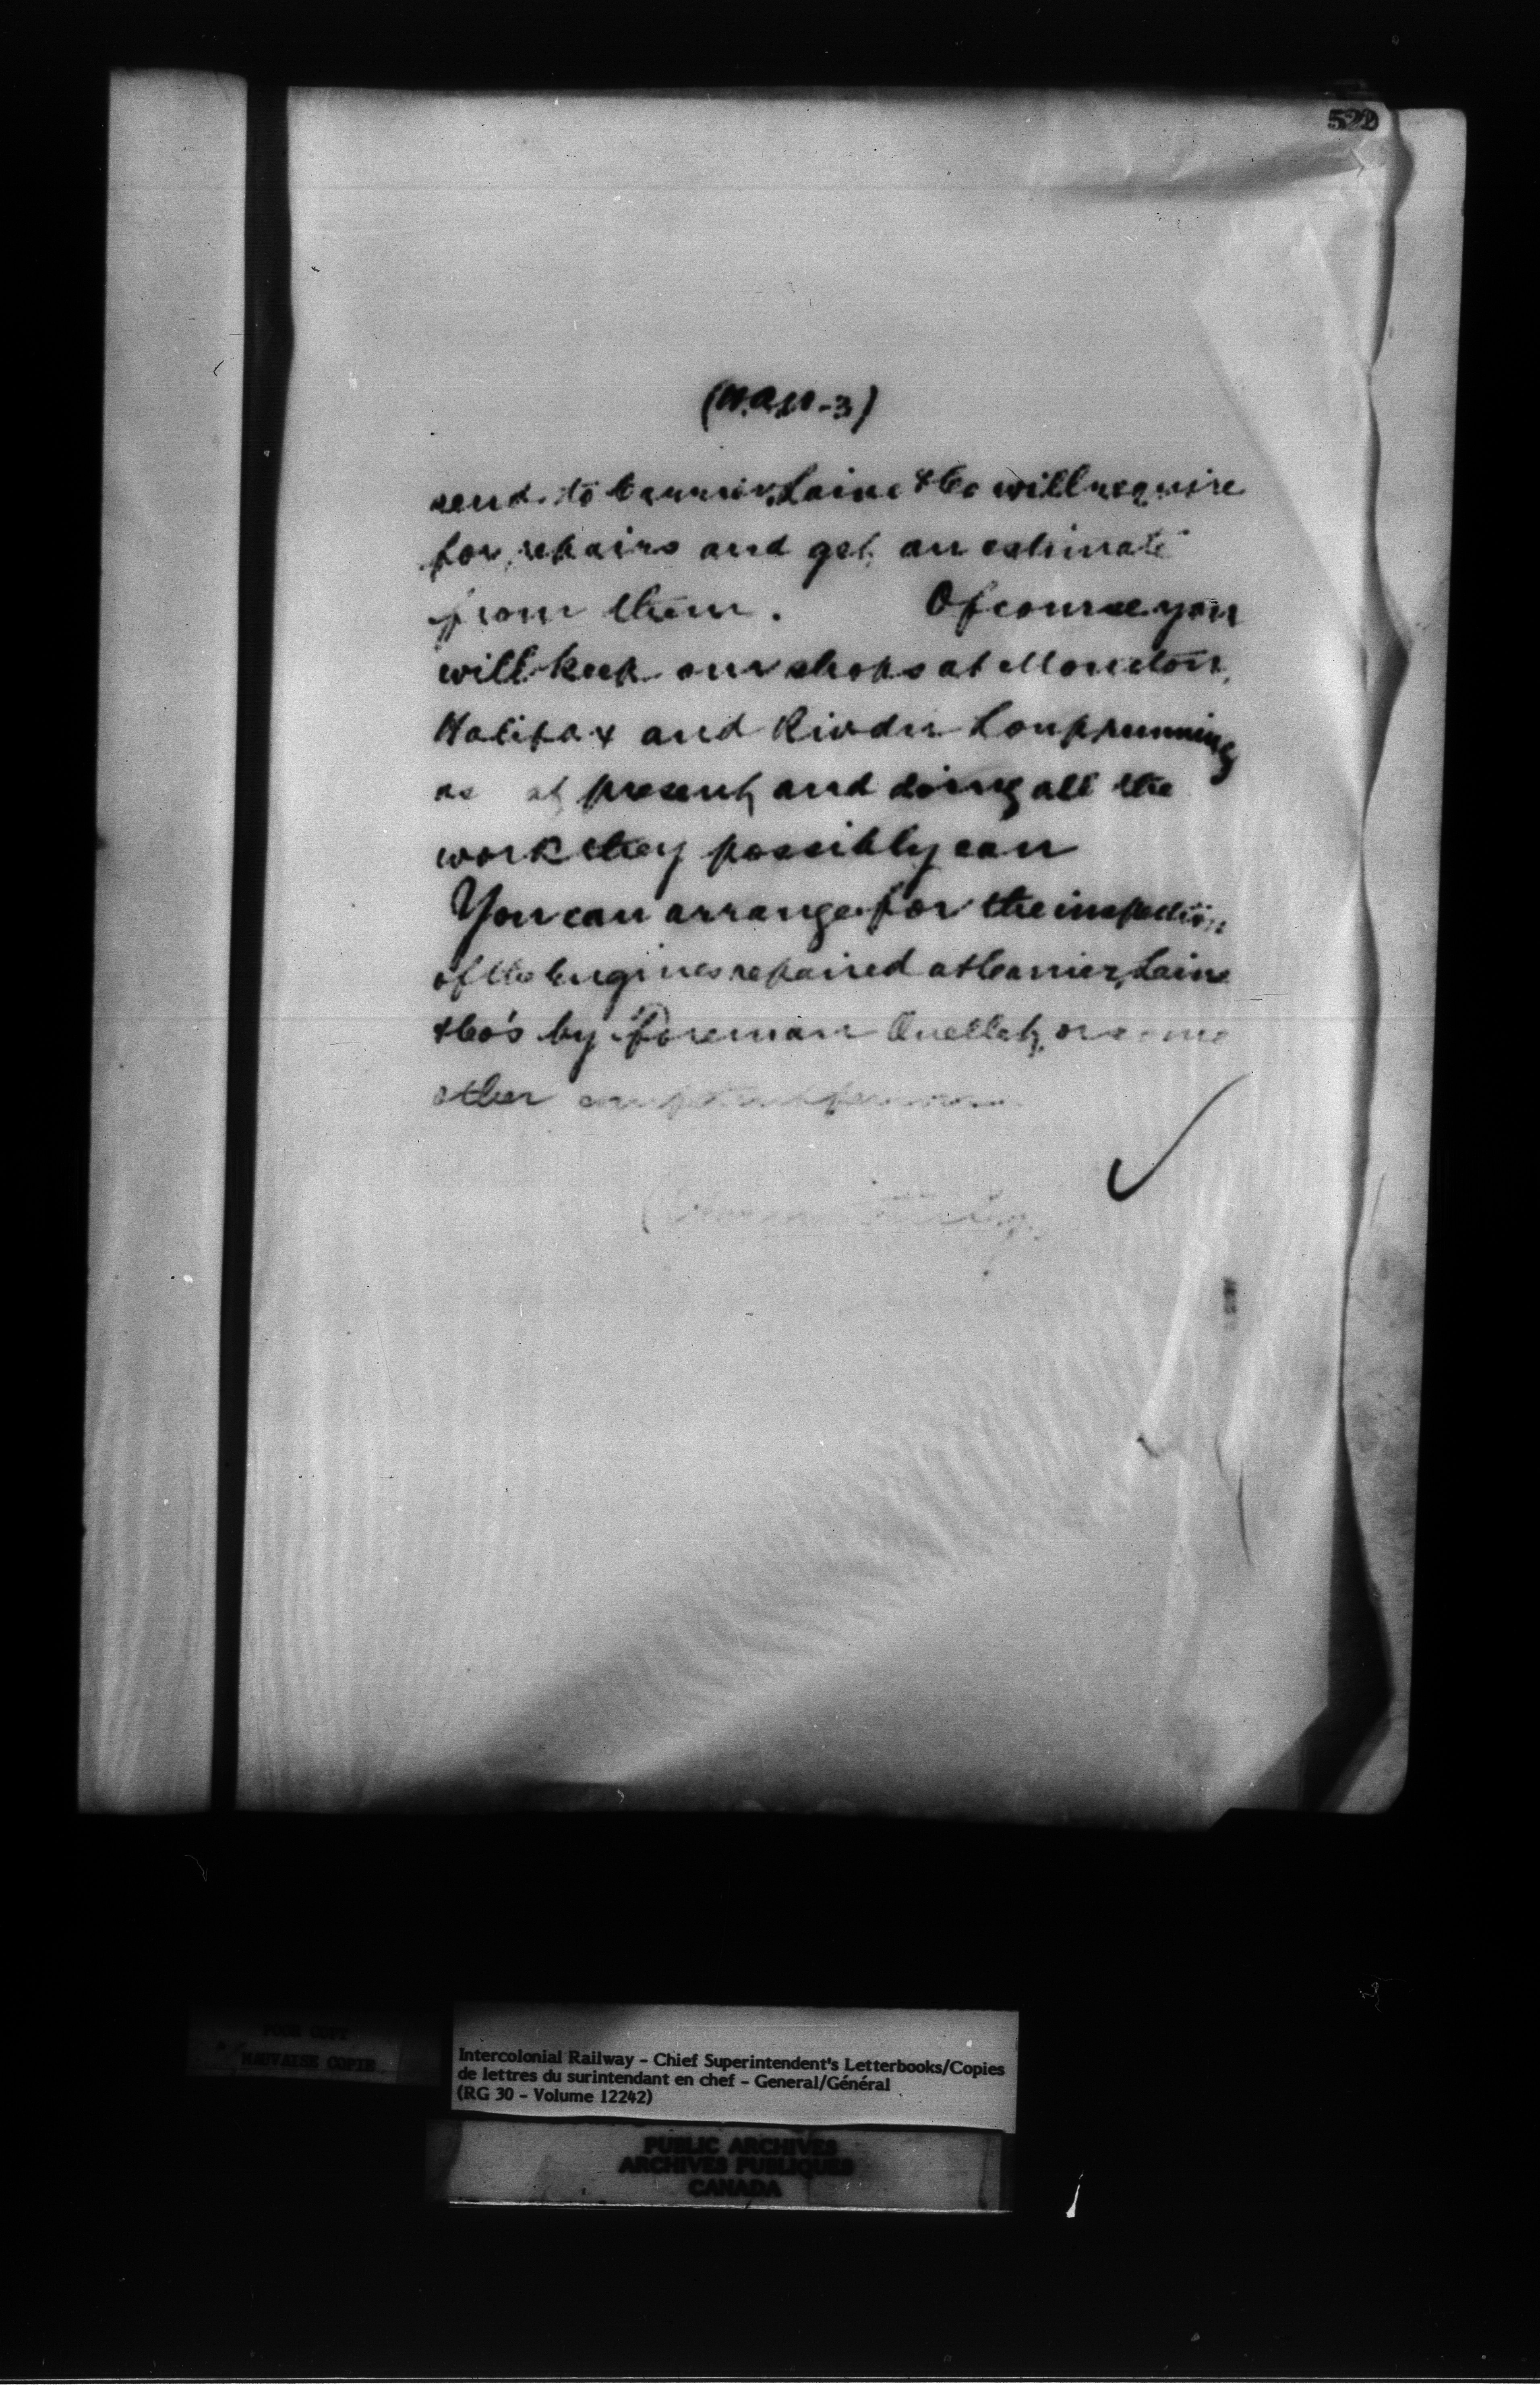 522
send to Carrier, Laine & Co will require
for repairs and get an estimate
from them. Of course you
will keep our shops at Moncton,
Halifax and Rivdu Loup running
as at present, and doing all the
work they possibly can
You can arrange for the inspection
of the Engines repaired at Carrier, Laine
& Co's by Foreman Ouellet, or some
other competent person
POOR COPY
MAUVAISE COPIE
Intercolonial Railway - Chief Superintendent's Letterbooks/Copies
de lettres du surintendant en chef - General/Général
(RG 30 - Volume 12242)
PUBLIC ARCHIVES
ARCHIVES PUBLIQUES
CANADA